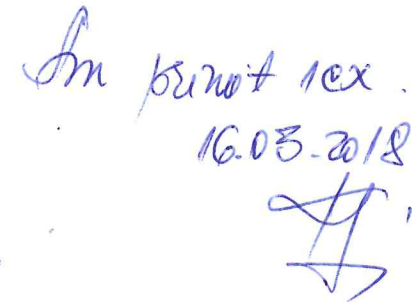 Am primit 1ex.
16.03.2018